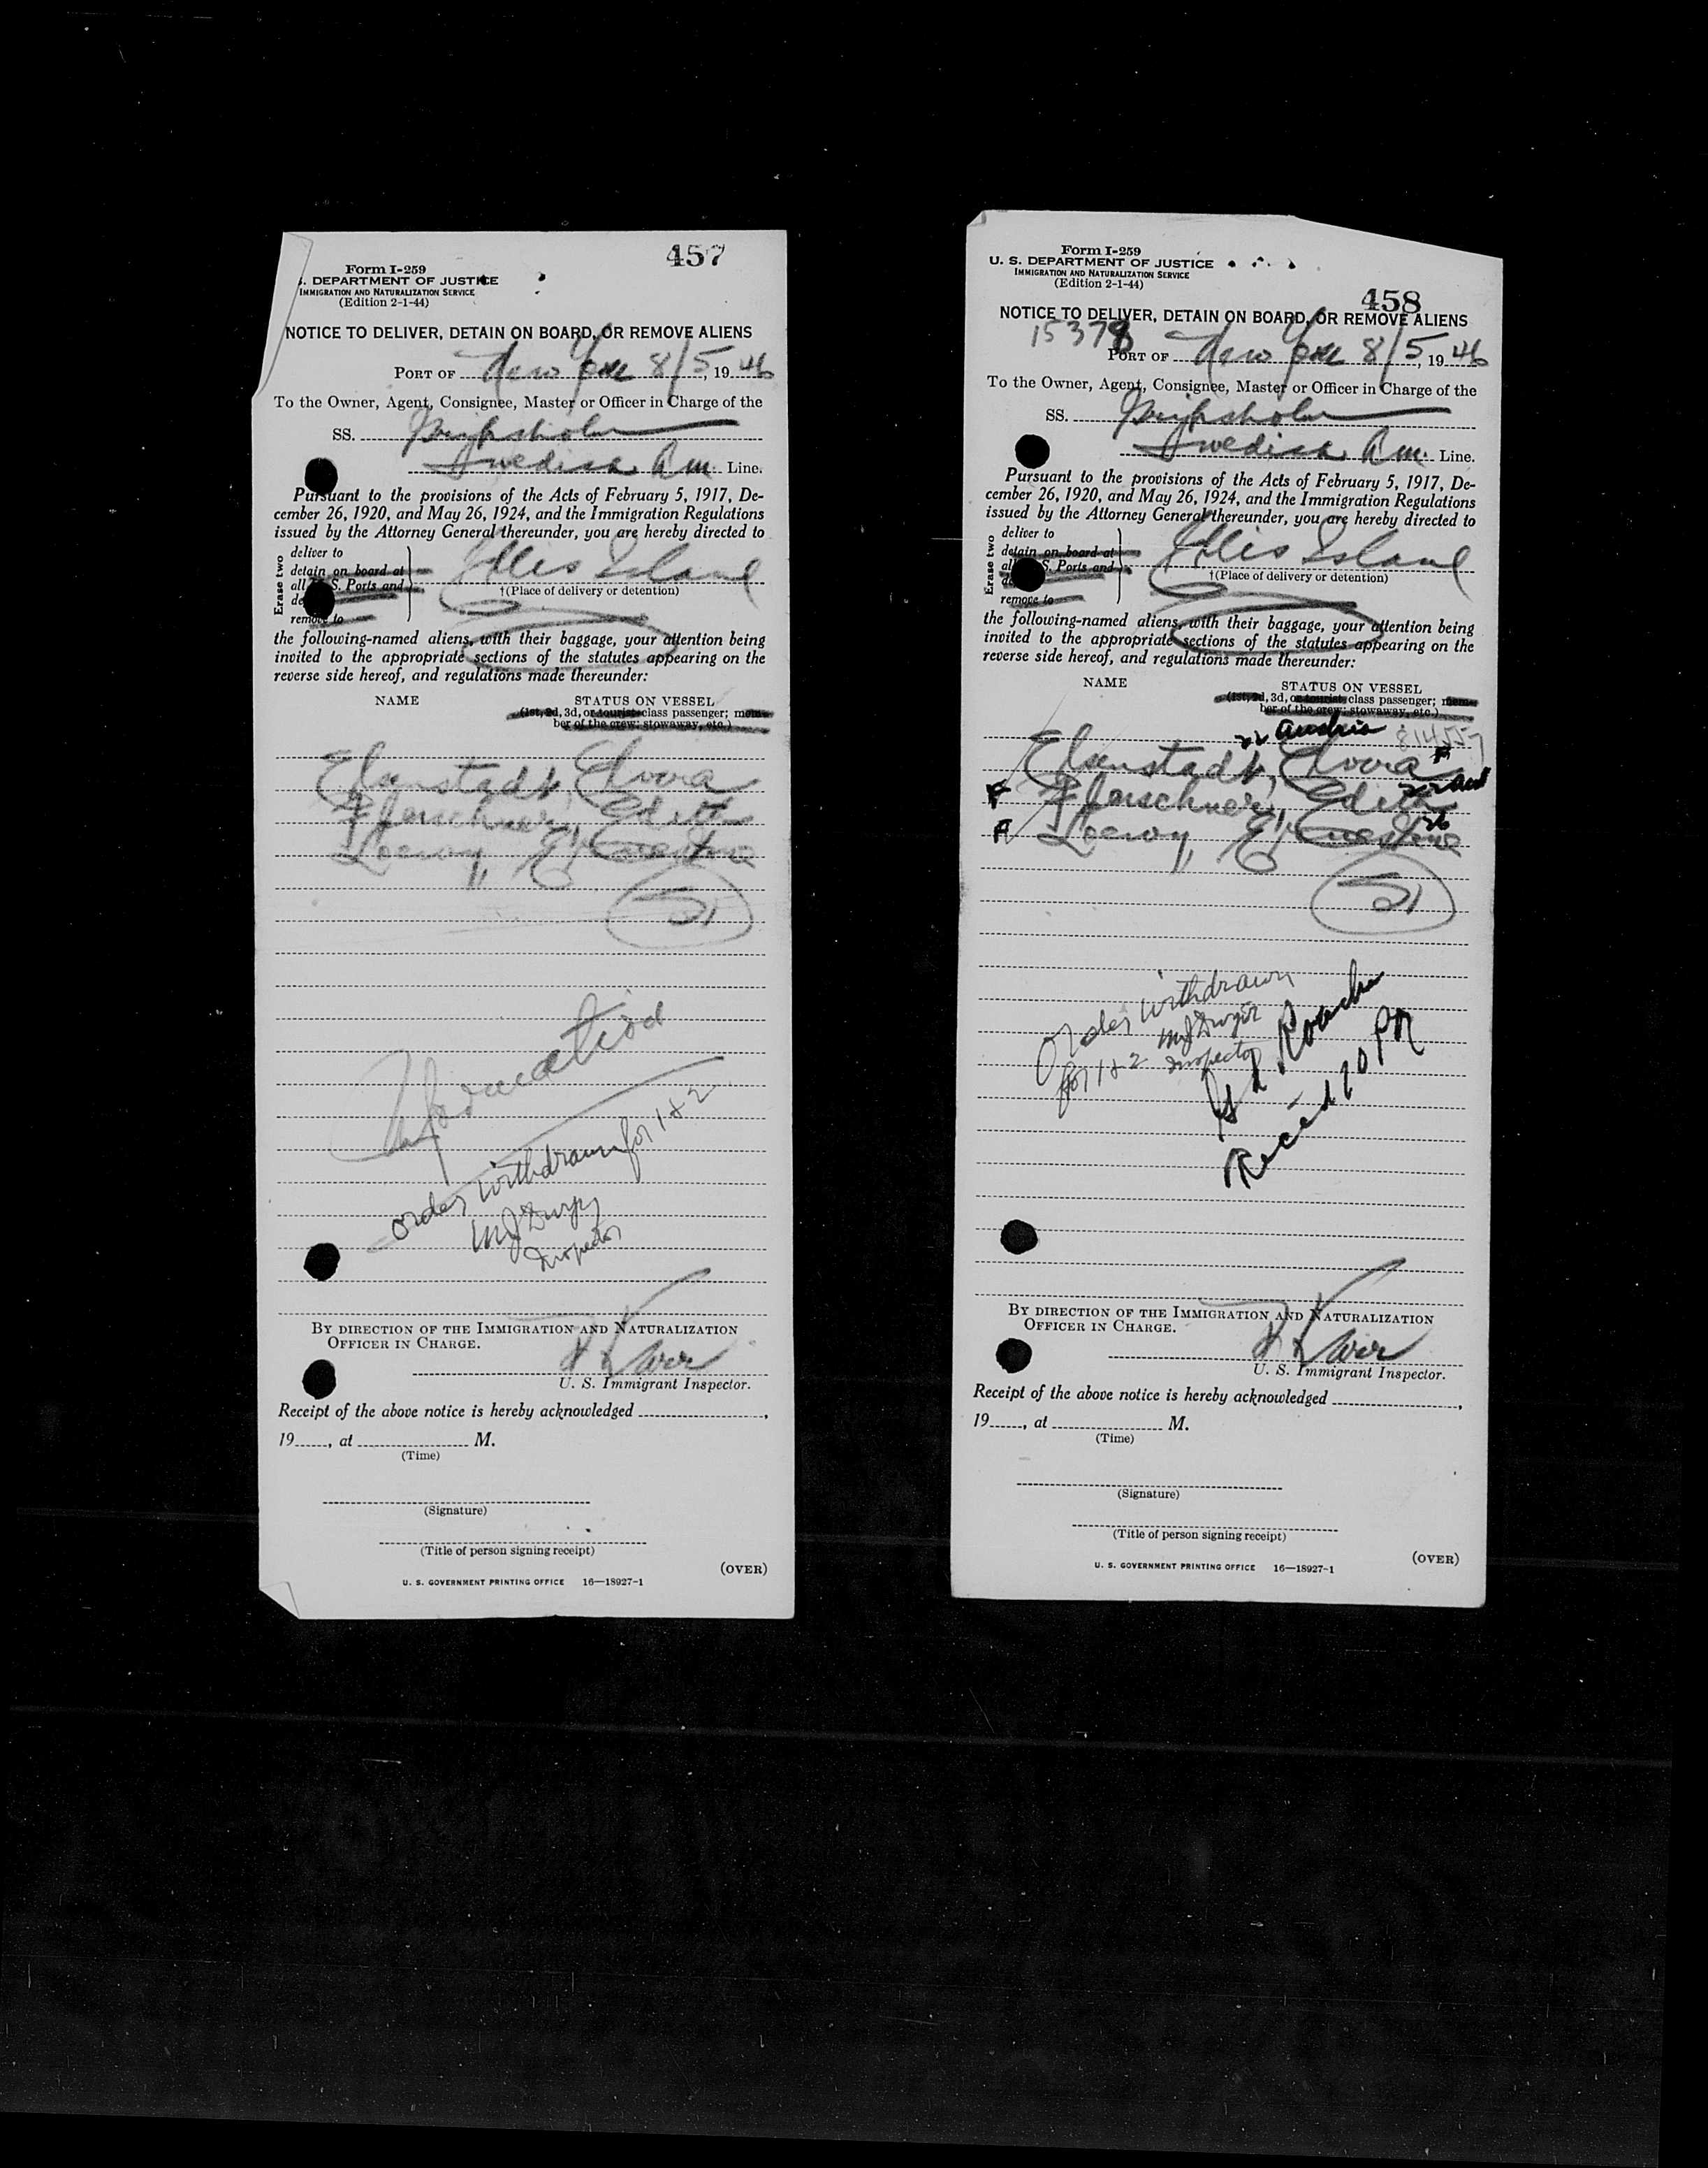 457
Form I-259
. DEPARTMENT OF JUSTICE
IMMIGRATION AND NATURALIZATION SERVICE
(Edition 2-1-44)
NOTICE TO DELIVER, DETAIN ON BOARD, OR REMOVE ALIENS
PORT OF New York 8/5, 1946
To the Owner, Agent, Consignee, Master or Officer in Charge of the
SS. Gripsholm
Swedish Am. Line.
Pursuant to the provisions of the Acts of February 5, 1917, De-
cember 26, 1920, and May 26, 1924, and the Immigration Regulations
issued by the Attorney General thereunder, you are hereby directed to
Erase two
deliver to
detain on board at
all U. S. Ports and
remove to
Ellis Island
†(Place of delivery or detention)
the following-named aliens, with their baggage, your attention being
invited to the appropriate sections of the statutes appearing on the
reverse side hereof, and regulations made thereunder:
NAME STATUS ON VESSEL
(1st, 2d, 3d, or tourist class passenger; mem-
ber of the crew; stowaway, etc.)
Elsenstadt, Elvora
Florschner, Edith
Leeroy, Ernestine
SI
Information
Order withdrawn for 1 & 2
Inspector
BY DIRECTION OF THE IMMIGRATION AND NATURALIZATION
OFFICER IN CHARGE.
U. S. Immigrant Inspector.
Receipt of the above notice is hereby acknowledged ,
19 , at M.
(Time)
(Signature)
(Title of person signing receipt)
(OVER)
U. S. GOVERNMENT PRINTING OFFICE 16—18927-1
Form I-259
U. S. DEPARTMENT OF JUSTICE
IMMIGRATION AND NATURALIZATION SERVICE
(Edition 2-1-44)
458
NOTICE TO DELIVER, DETAIN ON BOARD, OR REMOVE ALIENS
15378
PORT OF New York 8/5, 1946
To the Owner, Agent, Consignee, Master or Officer in Charge of the
SS. Gripsholm
Swedish Am. Line.
Pursuant to the provisions of the Acts of February 5, 1917, De-
cember 26, 1920, and May 26, 1924, and the Immigration Regulations
issued by the Attorney General thereunder, you are hereby directed to
Erase two
deliver to
detain on board at
all U. S. Ports and
remove to
Ellis Island
†(Place of delivery or detention)
the following-named aliens, with their baggage, your attention being
invited to the appropriate sections of the statutes appearing on the
reverse side hereof, and regulations made thereunder:
NAME STATUS ON VESSEL
(1st, 2d, 3d, or tourist class passenger; mem-
ber of the crew; stowaway, etc.)
22 Austria 814557
Elsenstadt, Elvora F
F Florschner, Edith
F Leeroy, Ernestine 26
SI
Order withdrawn
for 1 & 2
Inspector
Rec'd 120 PM
BY DIRECTION OF THE IMMIGRATION AND NATURALIZATION
OFFICER IN CHARGE.
U. S. Immigrant Inspector.
Receipt of the above notice is hereby acknowledged ,
19 , at M.
(Time)
(Signature)
(Title of person signing receipt)
(OVER)
U. S. GOVERNMENT PRINTING OFFICE 16—18927-1